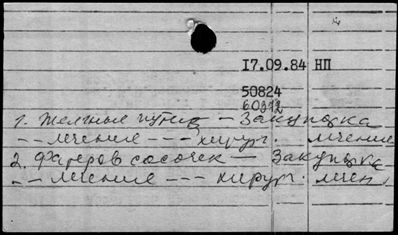 17.09.84 НП
50824
60972
1. Желчные пути – Закупорка
-- лечение --- хирург. лечение
2. Фатеров сосочек – Закупорка
-- лечение --- хирург. лечен.